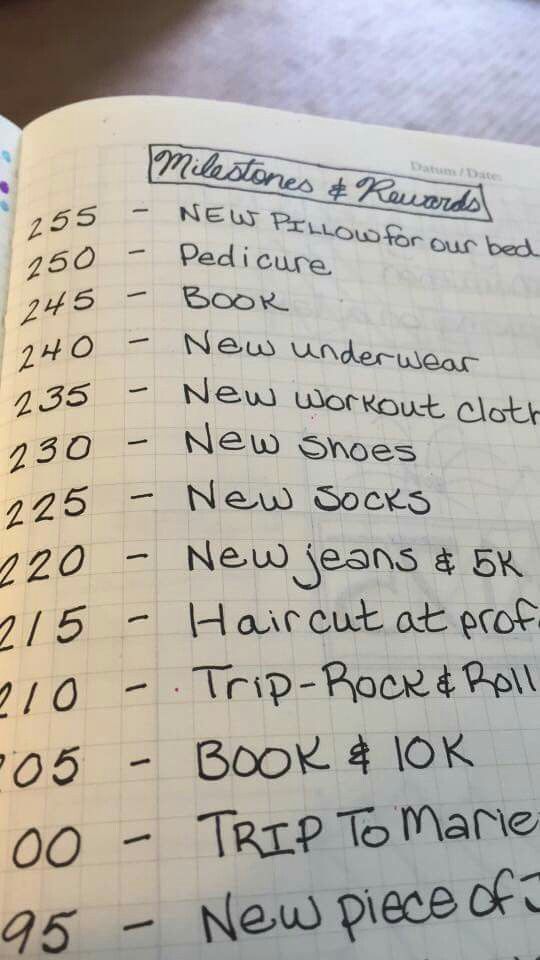 Datum / Date:
Milestones & Rewards
255 - NEW PILLOW for our bed
250 - Pedicure
245 - BOOK
240 - New underwear
235 - New workout cloth
230 - New Shoes
225 - New Socks
220 - New jeans & 5K
215 - Haircut at prof
210 - Trip - Rock & Roll
05 - BOOK & 10K
00 - TRIP To Marie
95 - New piece of J